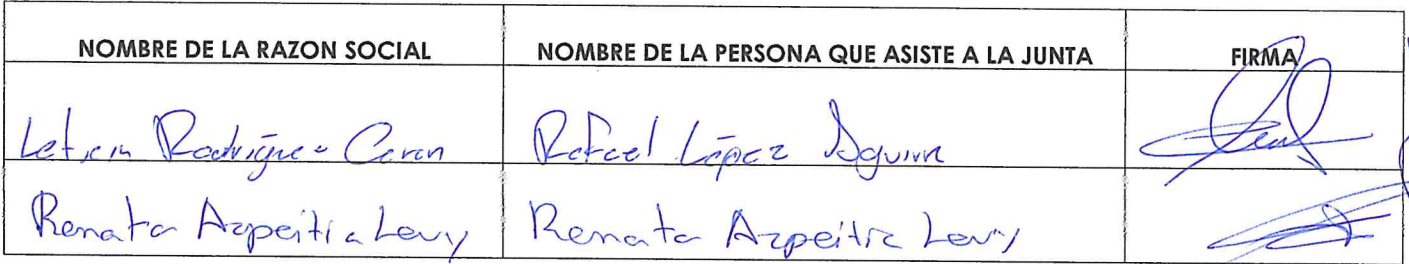 NOMBRE DE LA RAZON SOCIAL NOMBRE DE LA PERSONA QUE ASISTE A LA JUNTA FIRMA
Leticia Rodríguez Rafael López Aguirre
Renata Azpeitia Levy Renata Azpeitia Levy